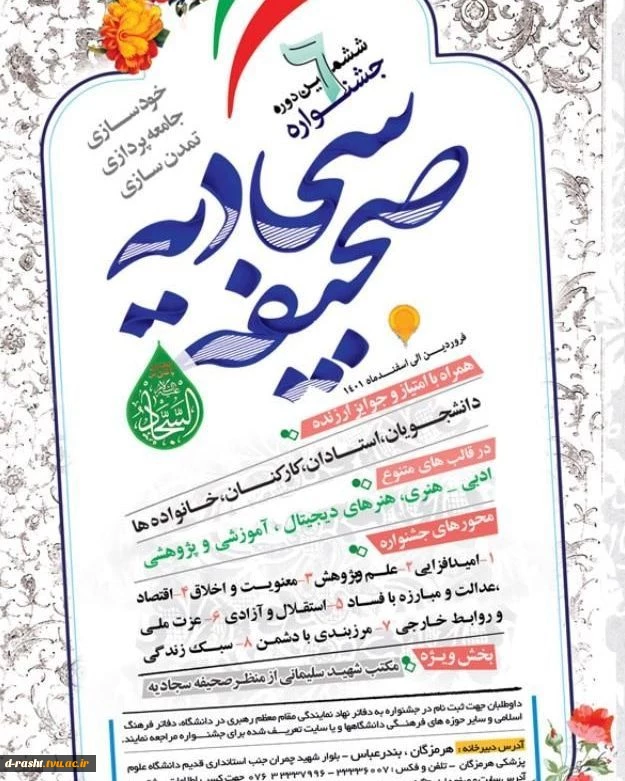 ششمین دوره
جشنواره
صحیفه سجادیه
خودسازی
جامعه پردازی
تمدن سازی
السجاد
فروردین الی اسفندماه ۱۴۰۱
همراه با امتیاز و جوایز ارزنده
دانشجویان، استادان، کارکنان، خانواده ها
در قالب های متنوع
ادبی - هنری، هنرهای دیجیتال، آموزشی و پژوهشی
محورهای جشنواره
۱- امیدافزایی ۲- علم و پژوهش ۳- معنویت و اخلاق ۴- اقتصاد
،عدالت و مبارزه با فساد ۵- استقلال و آزادی ۶- عزت ملی
و روابط خارجی ۷- مرزبندی با دشمن ۸- سبک زندگی
بخش ویژه
مکتب شهید سلیمانی از منظر صحیفه سجادیه
داوطلبان جهت ثبت نام در جشنواره به دفاتر نهاد نمایندگی مقام معظم رهبری در دانشگاه، دفاتر فرهنگ
اسلامی و سایر حوزه های فرهنگی دانشگاهها و یا سایت تعریف شده برای جشنواره مراجعه نمایند.
آدرس دبیرخانه : هرمزگان ، بندرعباس - بلوار شهید چمران جنب استانداری قدیم دانشگاه علوم
پزشکی هرمزگان - تلفن و فکس : ۳۳۳۳۶۰۰۷ - ۳۳۳۳۷۹۹۶ ۰۷۶
d-rasht.tvu.ac.ir